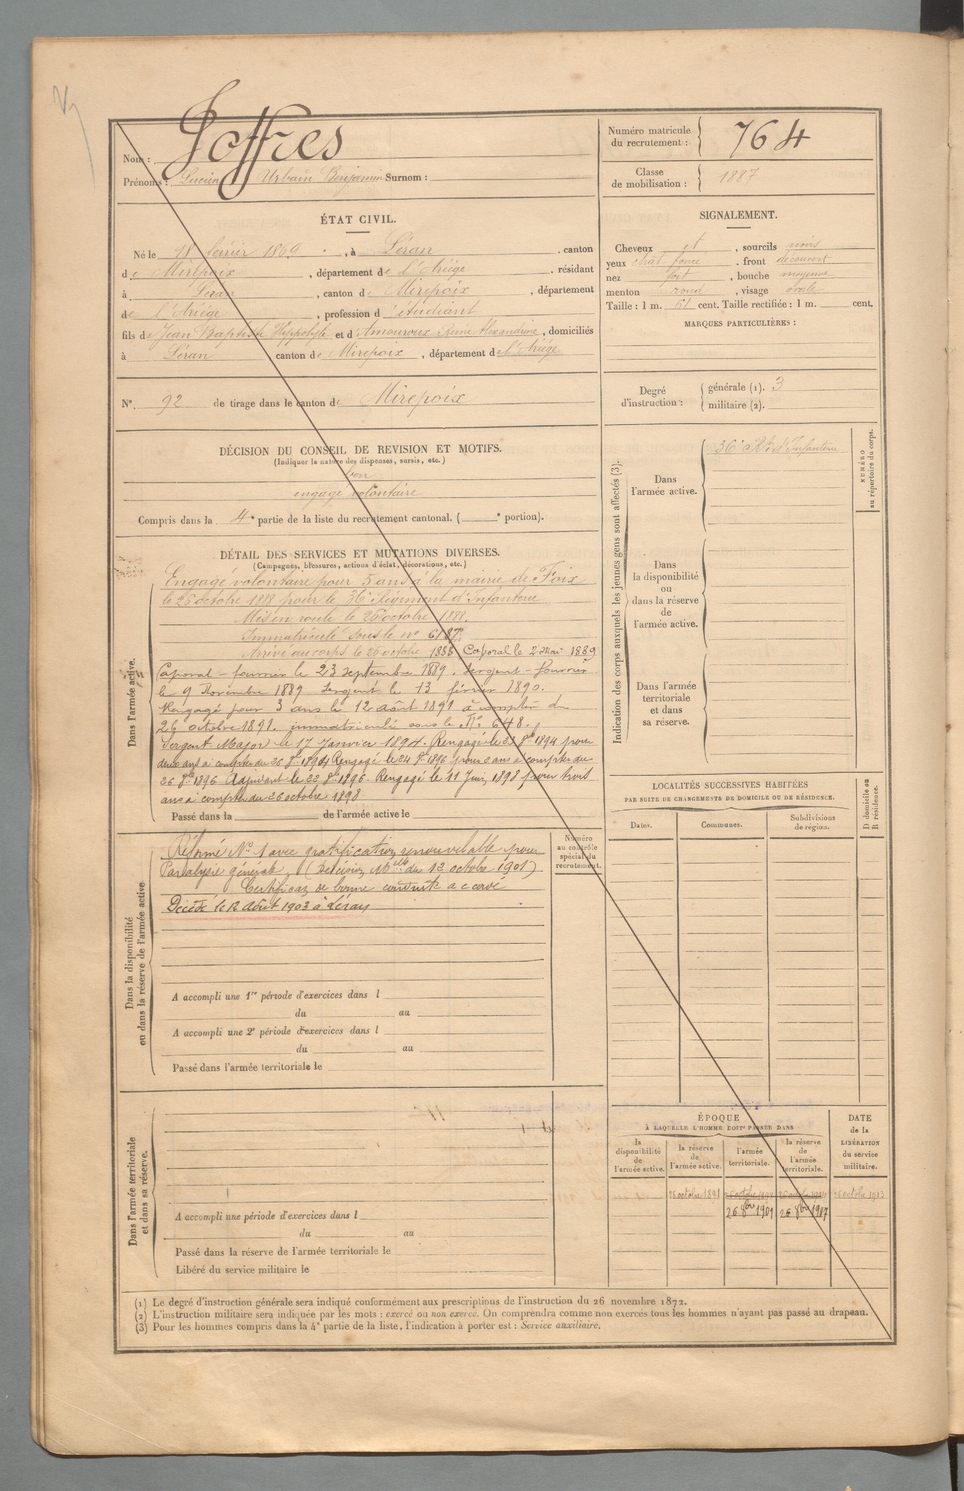 Nom : Joffres
Prénoms : Lucien Urbain Benjamin Surnom :
Numéro matricule du recrutement : 764
Classe de mobilisation : 1887
ÉTAT CIVIL.
Né le 18 février 1869, à Léran, canton
de Mirepoix, département de l'Ariège, résidant
à Léran, canton de Mirepoix, département
de l'Ariège, profession d'étudiant
fils de Jean Baptiste Hippolyte et d'Amouroux Anne Alexandrine, domiciliés
à Léran canton de Mirepoix, département de l'Ariège
N° 92 de tirage dans le canton de Mirepoix
SIGNALEMENT.
Cheveux et, sourcils noirs
yeux chât. foncé. front découvert
nez fort, bouche moyenne
menton rond, visage ovale
Taille : 1 m. 51 cent. Taille rectifiée : 1 m. cent.
MARQUES PARTICULIÈRES :
Degré d'instruction : générale (1). 3
militaire (2).
DÉCISION DU CONSEIL DE REVISION ET MOTIFS.
(Indiquer la nature des dispenses, sursis, etc.)
bon
engagé volontaire
Compris dans la 4e partie de la liste du recrutement cantonal. ( e portion).
DÉTAIL DES SERVICES ET MUTATIONS DIVERSES.
(Campagnes, blessures, actions d'éclat, décorations, etc.)
Dans l'armée active.
Engagé volontaire pour 5 ans à la mairie de Foix
le 25 octobre 1888 pour le 36e Régiment d'Infanterie
Mis en route le 25 octobre 1888.
Immatriculé sous le no 6187.
Arrivé au corps le 26 octobre 1888 Caporal le 2 mai 1889
Caporal-fourrier le 23 septembre 1889. Sergent-fourrier
le 9 Novembre 1889 Sergent le 13 février 1890.
Rengagé pour 3 ans le 12 août 1891 à compter du
26 octobre 1891. immatriculé sous le No 648.
Sergent-Major le 17 Janvier 1894. Rengagé le 8bre 1894 pour
deux ans à compter du 26 8bre 1894 Rengagé le 24 8bre 1896 pour 2 ans à compter du
26 8bre 1896 Adjudant le 22 8bre 1896. Rengagé le 11 Juin 1898 pour trois
ans à compter du 26 octobre 1898
Passé dans la de l'armée active le
Dans la disponibilité ou dans la réserve de l'armée active
Réformé No 1 avec gratification renouvelable pour
Paralysie générale, (Décision Mlle du 12 octobre 1901)
Certificat de bonne conduite accordé
Décédé le 12 Août 1903 à Léran
A accompli une 1re période d'exercices dans l
du au
A accompli une 2e période d'exercices dans l
du au
Passé dans l'armée territoriale le
Numéro au contrôle spécial du recrutement.
Dans l'armée territoriale et dans sa réserve.
A accompli une période d'exercices dans l
du au
Passé dans la réserve de l'armée territoriale le
Libéré du service militaire le
Indication des corps auxquels les jeunes gens sont affectés (3).
Dans l'armée active.
36e Rt d'Infanterie
NUMÉRO au répertoire du corps.
Dans la disponibilité ou dans la réserve de l'armée active.
Dans l'armée territoriale et dans sa réserve.
LOCALITÉS SUCCESSIVES HABITÉES
PAR SUITE DE CHANGEMENTS DE DOMICILE OU DE RÉSIDENCE.
Dates. Communes. Subdivisions de région. D domicile ou R résidence.
ÉPOQUE
À LAQUELLE L'HOMME DOIT PASSER DANS
la disponibilité de l'armée active.
la réserve de l'armée active.
l'armée territoriale.
la réserve de l'armée territoriale.
DATE de la LIBÉRATION du service militaire.
25 octobre 1891
25 octobre 1913
26 8bre 1901 26 8bre 1907
(1) Le degré d'instruction générale sera indiqué conformément aux prescriptions de l'instruction du 26 novembre 1872.
(2) L'instruction militaire sera indiquée par les mots : exercé ou non exercé. On comprendra comme non exercés tous les hommes n'ayant pas passé au drapeau.
(3) Pour les hommes compris dans la 4e partie de la liste, l'indication à porter est : Service auxiliaire.